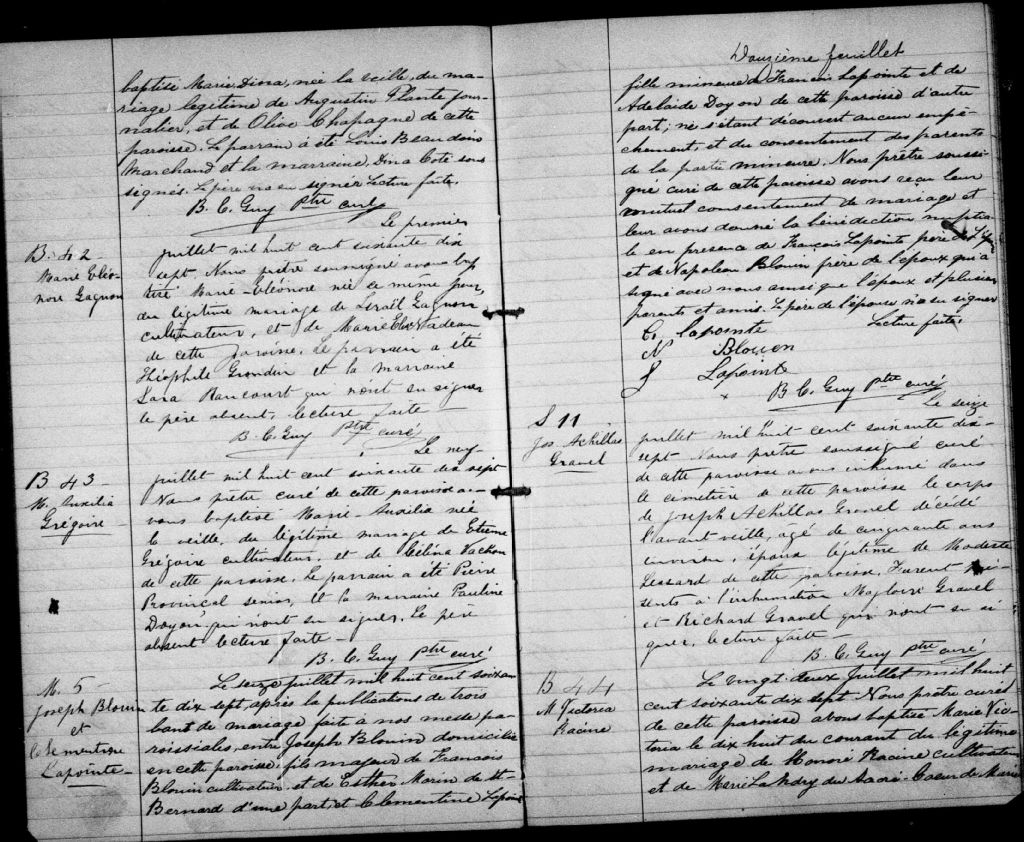 baptisé Marie, Dina, née la veille, du ma-
riage légitime de Augustin Plante jour-
nalier, et de Olive Chapagne de cette
paroisse. Le parrain a été Louis Beaudoin
Marchand et la marraine, Dina Coté sous
signés. Le père n'a su signer Lecture faite.
B. C. Guy Ptre curé
B. 42
Marie Eléo-
nore Gagnon
Le premier
juillet mil huit cent soixante dix
sept, Nous prêtre soussigné avons bap
tisé Marie-Eléonore née ce même jour,
du légitime mariage de Israël Gagnon
cultivateur, et de Marie Nadeau
de cette paroisse. Le parrain a été
Théophile Grondin et la marraine
Sara Rancourt qui n'ont su signer
le père absent, lecture faite —
B. C. Guy Ptre curé
B 43 -
M. Auxilia
Grégoire
Le neuf
juillet mil huit cent soixante dix sept
Nous prêtre curé de cette paroisse a-
vons baptisé Marie-Auxilia née
la veille, du légitime mariage de Etienne
Grégoire cultivateur, et de Célina Vachon
de cette paroisse. Le parrain a été Pierre
Provinçal senior, et la marraine Pauline
Doyon qui n'ont su signer. Le père
absent lecture faite —
B. C. Guy ptre curé
M. 5 -
Joseph Blouin
et
Clémentine
Lapointe -
Le seize juillet mil huit cent soixan
te dix sept, après la publications de trois
bant de mariage fait à nos messe pa-
roissiales, entre Joseph Blouin domicilié
en cette paroisse, fils majeur de Francois
Blouin cultivateur et de Esther Morin de St
Bernard d'une part, et Clementine Lapointe
Douzième feuillet
fille mineure de Francois Lapointe et de
Adelaide Doyon de cette paroisse d'autre
part; ne s'étant découvert aucun empê-
chement, et du consentement des parents
de la partie mineure, Nous prêtre soussi-
gné curé de cette paroisse avons reçu leur
mutuel consentement de mariage et
leur avons donné la bénédiction nuptia
le en presence de François Lapointe père de
et de Napoleon Blouin frère de l'epoux qui a
signé avec nous ainsi que l'époux et plusieurs
parents et amis. Le père de l'épouse n'a su signer
Lecture faite.
C. Lapointe
N Blouin
J Lapointe
B. C. Guy ptre curé
S 11
Jos Achillas
Gravel
Le seize
juillet mil huit cent soixante dix-
sept Nous prêtre soussigné curé
de cette paroisse avons inhumé dans
le cimetière de cette paroisse le corps
de Joseph Achillas Gravel décédé
l'avant veille, agé de cinquante ans
environ, époux légitime de Modeste
Lessard de cette paroisse. Furent pré-
sents à l'inhumation Magloire Gravel
et Richard Gravel qui n'ont su si
gner, lecture faite —
B. C. Guy ptre curé
B 44
M. Victoria
Racine
Le vingt deux Juillet mil huit
cent soixante dix sept Nous prêtre curé
de cette paroisse avons baptisé Marie Vic-
toria le dix huit du courant du légitime
mariage de Honoré Racine cultivateur
et de Marie Landry du Sacré-Coeur de Marie